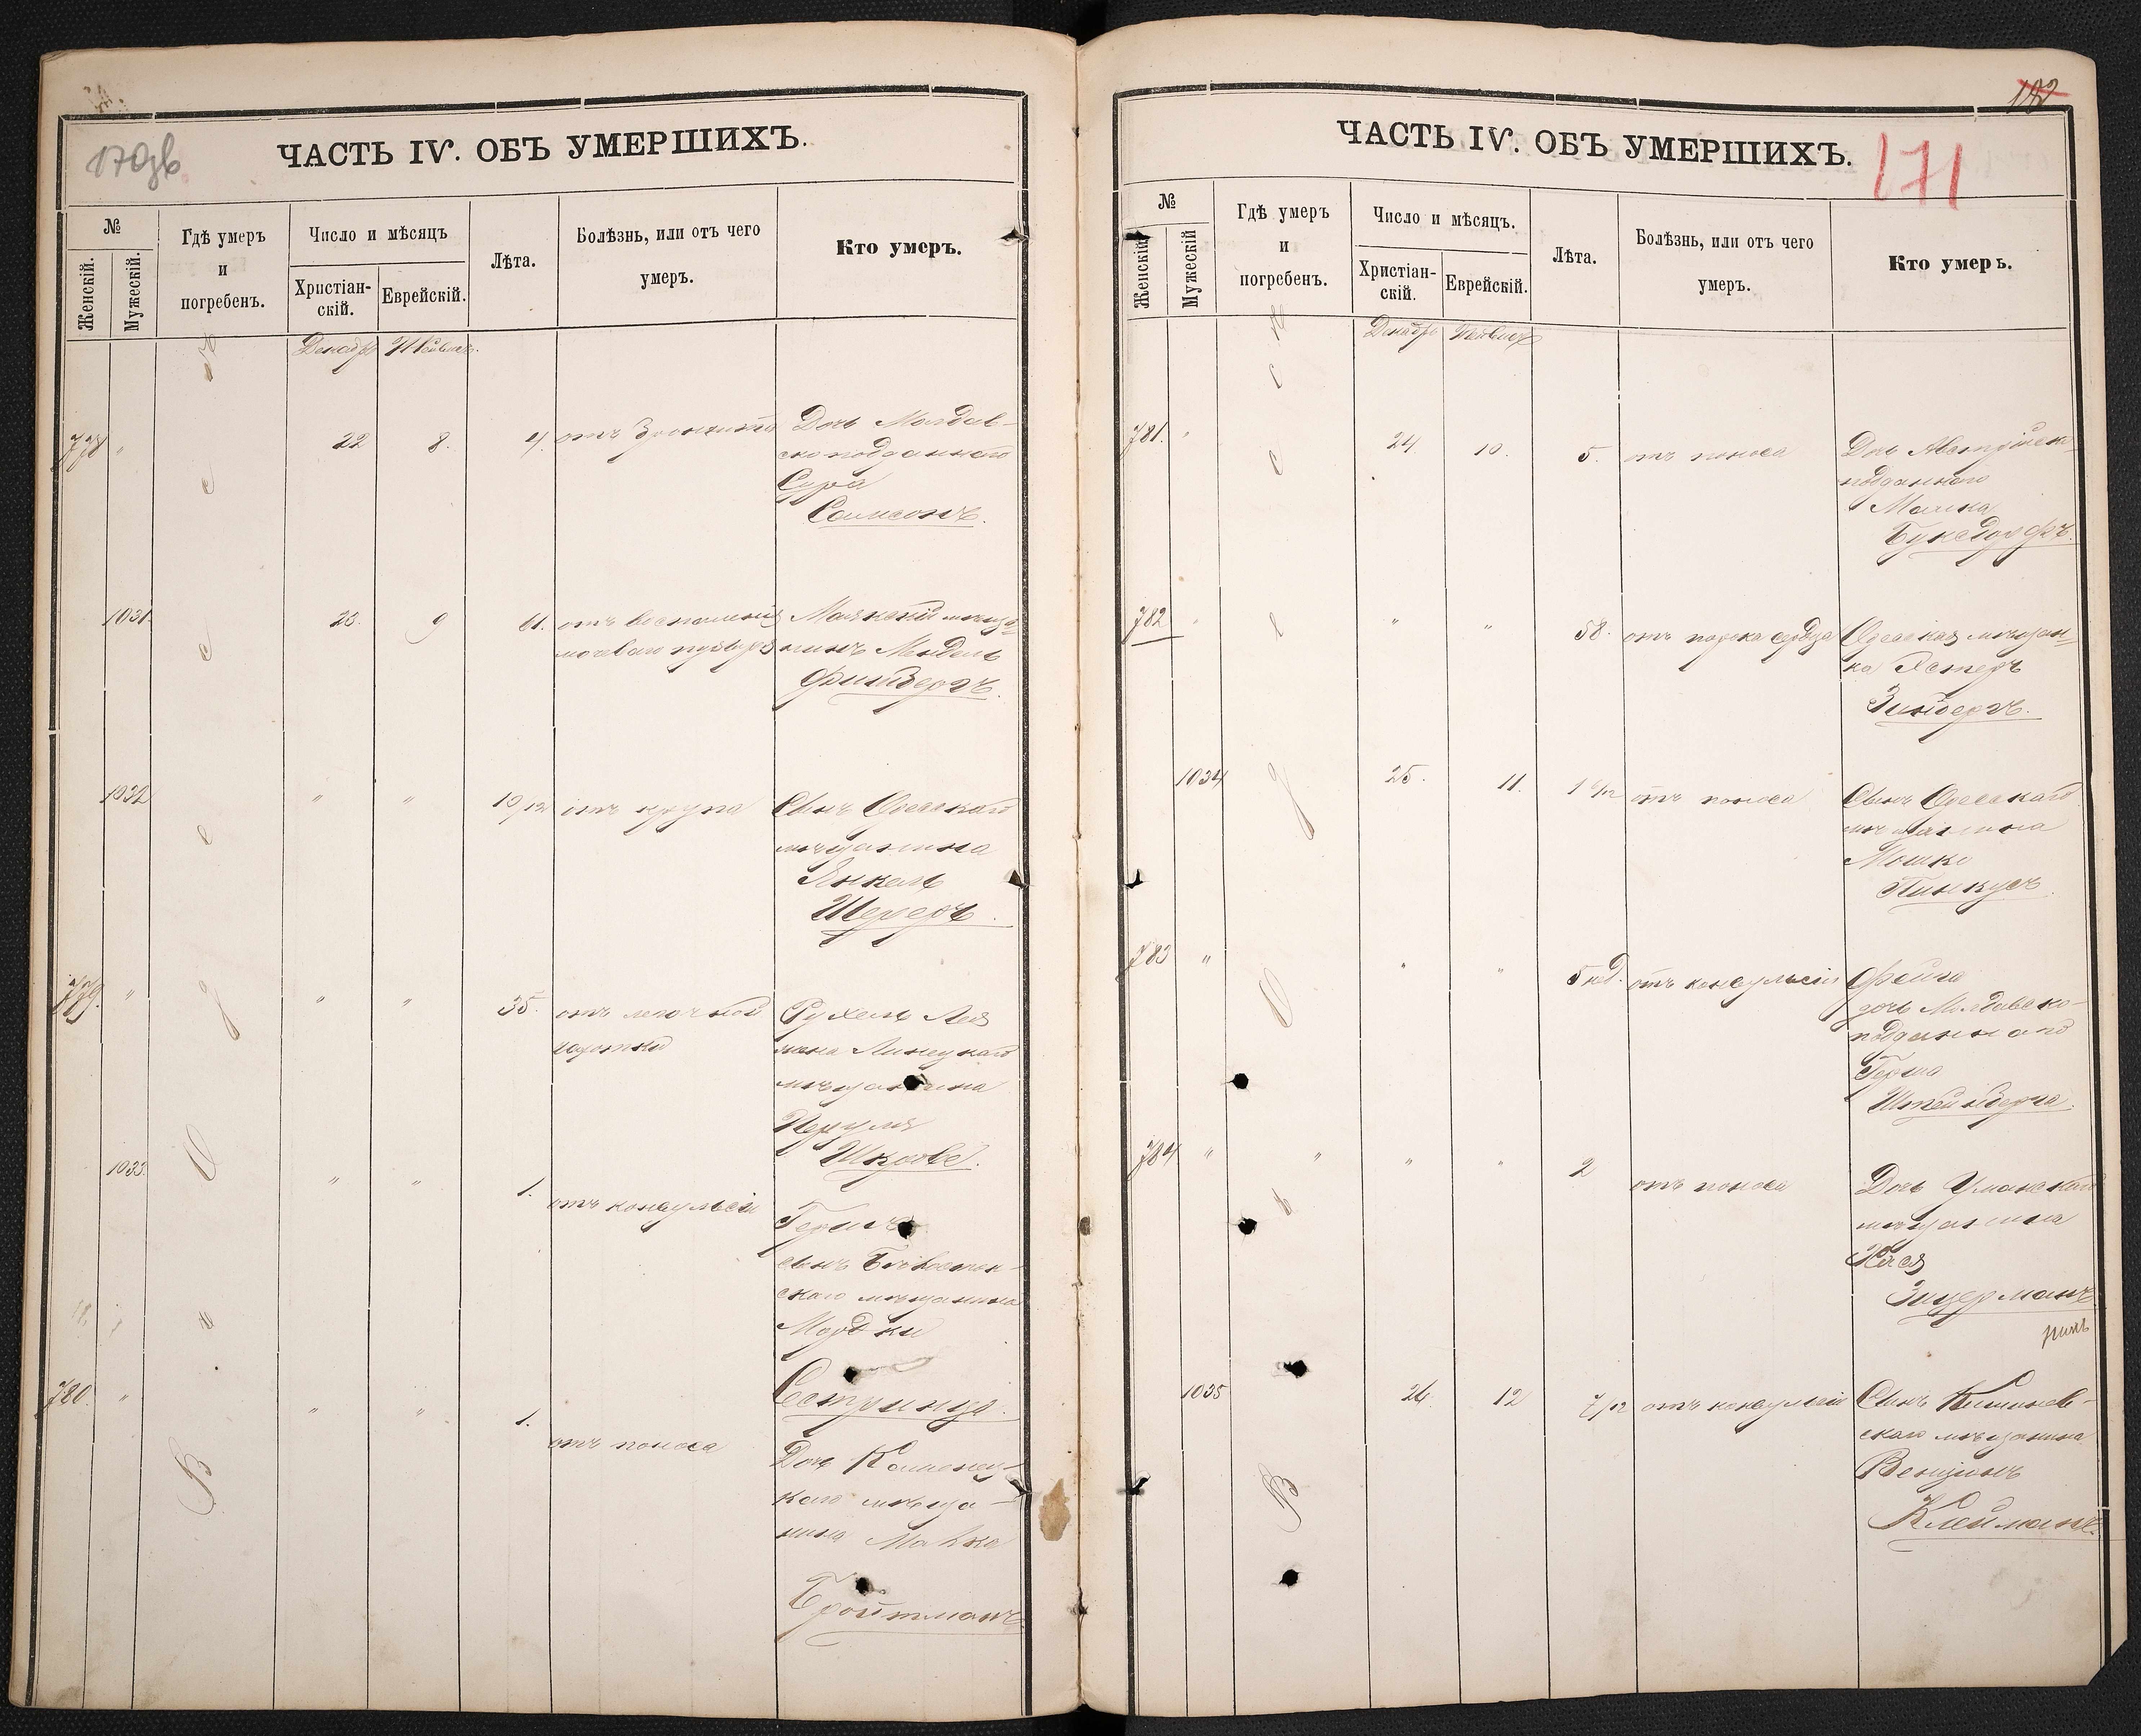 170зв
ЧАСТЬ IV. ОБЪ УМЕРШИХЪ.
№
Женскій.
Мужескій.
Гдѣ умеръ
и
погребенъ.
Число и мѣсяцъ
Христіан-
скій.
Еврейскій.
Лѣта.
Болѣзнь, или отъ чего
умеръ.
Кто умеръ.
Декабр
778 "
22 8. 4. отъ бронхита
Дочь Молдав-
скоподданнаго
Сура
Самсонъ.
1031. 23. 9 61. отъ воспаленія
мочеваго пузыря
Маякскій мѣща-
нинъ Мендель
Финбергъ.
1032 " " 10/12 отъ крупа
Сынъ Одесскаго
мѣщанина
Янкель
Шереръ.
779. " " " 35. отъ легочной
чахотки
Рухель Лея
жена Линецкаго
мѣщанина
Шкловс.
1033. " " 1. отъ конвульсіи
Гершъ
сынъ
скаго мѣщанина
Мордки
780. " " " 1. отъ поноса
Дочь Каменец-
каго мѣща-
нина Малка
Бройтманъ.
182
ЧАСТЬ IV. ОБЪ УМЕРШИХЪ.
171
№
Женскій.
Мужескій
Гдѣ умеръ
и
погребенъ.
Число и мѣсяцъ.
Христіан-
скій.
Еврейскій.
Лѣта.
Болѣзнь, или отъ чего
умеръ.
Кто умеръ.
Декабр
781. " 24. 10. 5. отъ поноса
Дочь Австрійско-
подданнаго
Малка
Буксдорфъ.
782 " " " 58. отъ порока сердца
Одесская мѣщан-
ка Эстеръ
Зинбергъ.
1034 25. 11. отъ поноса
Сынъ Одесскаго
мѣщанина
Мошко
Пинкусъ.
783 " " " 5 нд. отъ конвульсіи
Фейга
дочь Молдавско-
подданнаго
Герша
Штейнберга.
784 " " " " 2 отъ поноса
Дочь Уманскаго
мѣщанина
Зицерманъ
1035 26. 12 7/12 отъ конвульсіи
Сынъ Кишинев-
скаго мѣщанина
Бенціонъ
Клейманъ.